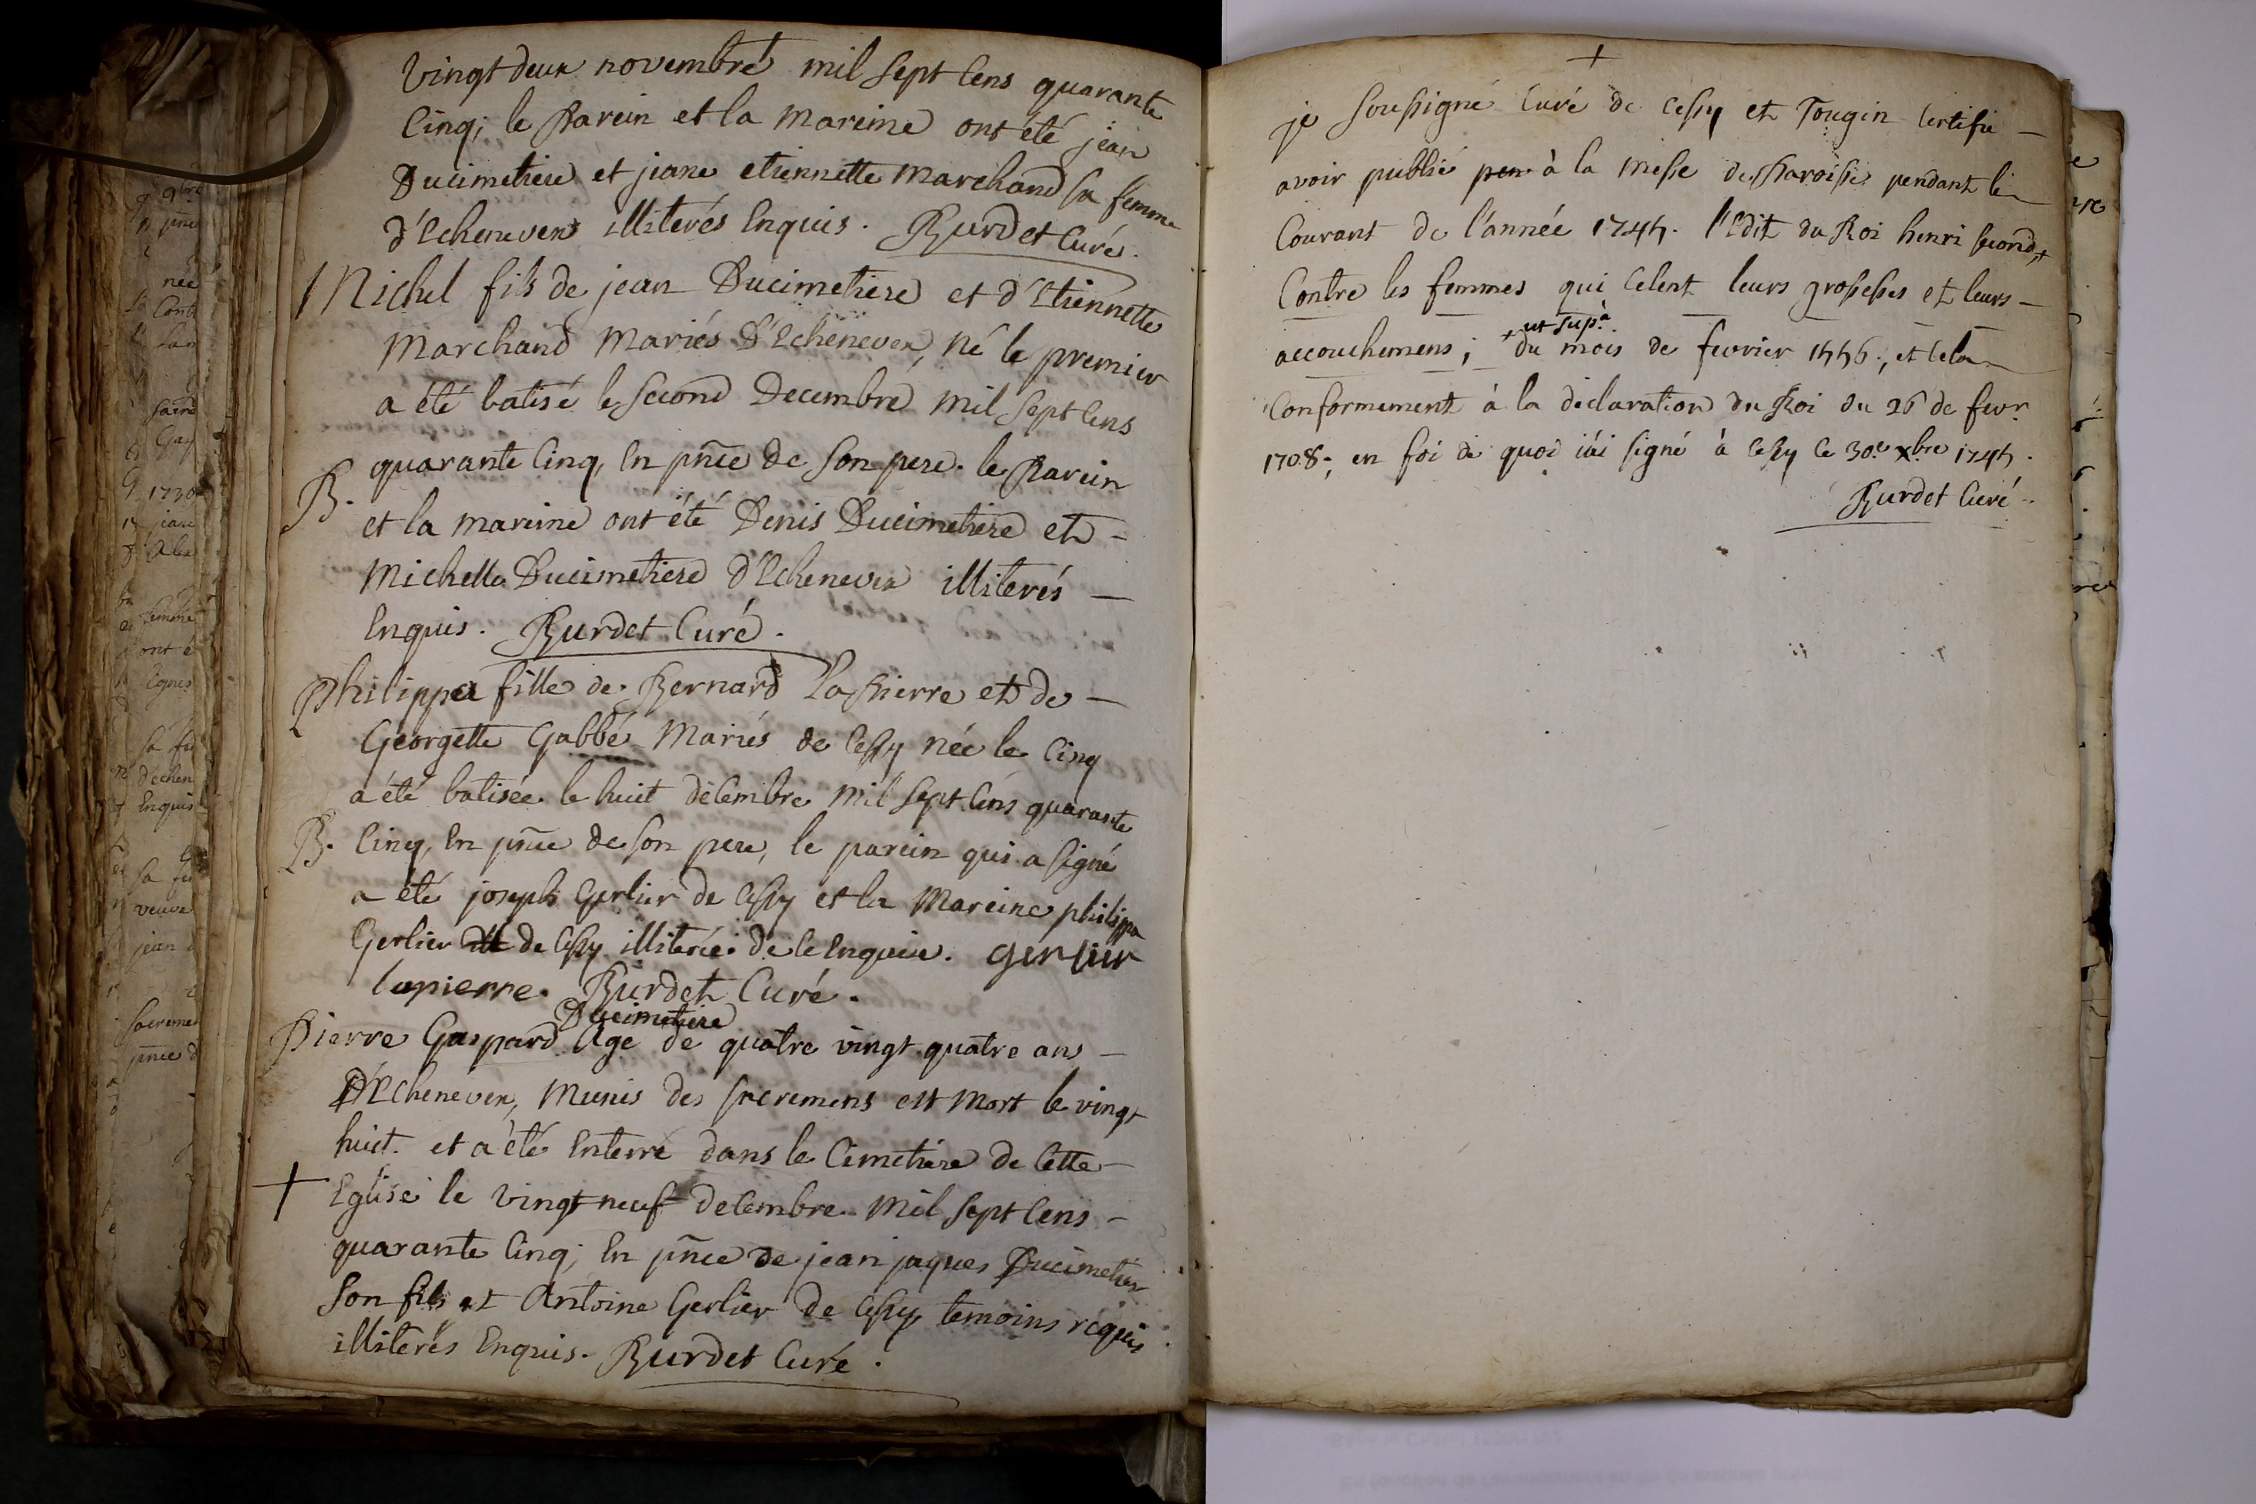 vingt deux novembre mil sept cens quarante
cinq; le parein et la mareine ont été jean
Ducimetiere et jeane etiennette marchand sa femme
d'Echenevex illiterés enquis. Burdet Curé.
Michel fils de jean Ducimetiere et d'Etiennette
Marchand Mariés d'Echenevex, né le premier
a été batisé le second Decembre mil sept cens
quarante cinq, en pñce de son pere. le parein
B.
et la mareine ont été Denis Ducimetiere et -
Michella Ducimetiere d'Echenevex illiterés -
enquis. Burdet Curé.
Philippa fille de Bernard Lapierre et de -
Georgette Gabbé Mariés de Cessy née le cinq
a été batisée le huit décembre mil sept cens quarante
B. cinq, en pñce de son pere, le parein qui a signé
a été joseph Gerlier de Cessy et la Mareine philippa
Gerlier de Cessy illiterée de ce enquise. gerlier
lapierre. Burdet Curé.
Ducimetiere
Pierre Gaspard Agé de quatre vingt quatre ans -
D'Echenevex, Munis des sacremens est mort le vingt
huit. et a été enterré dans le Cimetiere de cette -
+ Eglise le vingt neuf decembre mil sept cens -
quarante cinq; en pñce de jean jaques Ducimetier
son fils et Antoine Gerlier de Cessy temoins requis
illiterés enquis. Burdet Curé.
+
je soussigné Curé de Cessy et Tougin certifie -
avoir publié pen à la messe de paroisse pendant le
Courant de l'année 1745. l'Edit du Roi henri second, +
Contre les femmes qui celent leurs grossesses et leurs -
+ ut sup.a
accouchemens; du mois de fevrier 1556; et cela
conformement à la declaration du Roi du 26 de fevr.
1708; en foi de quoi j'ai signé à Cessy ce 30.e xbre 1745.
Burdet Curé.